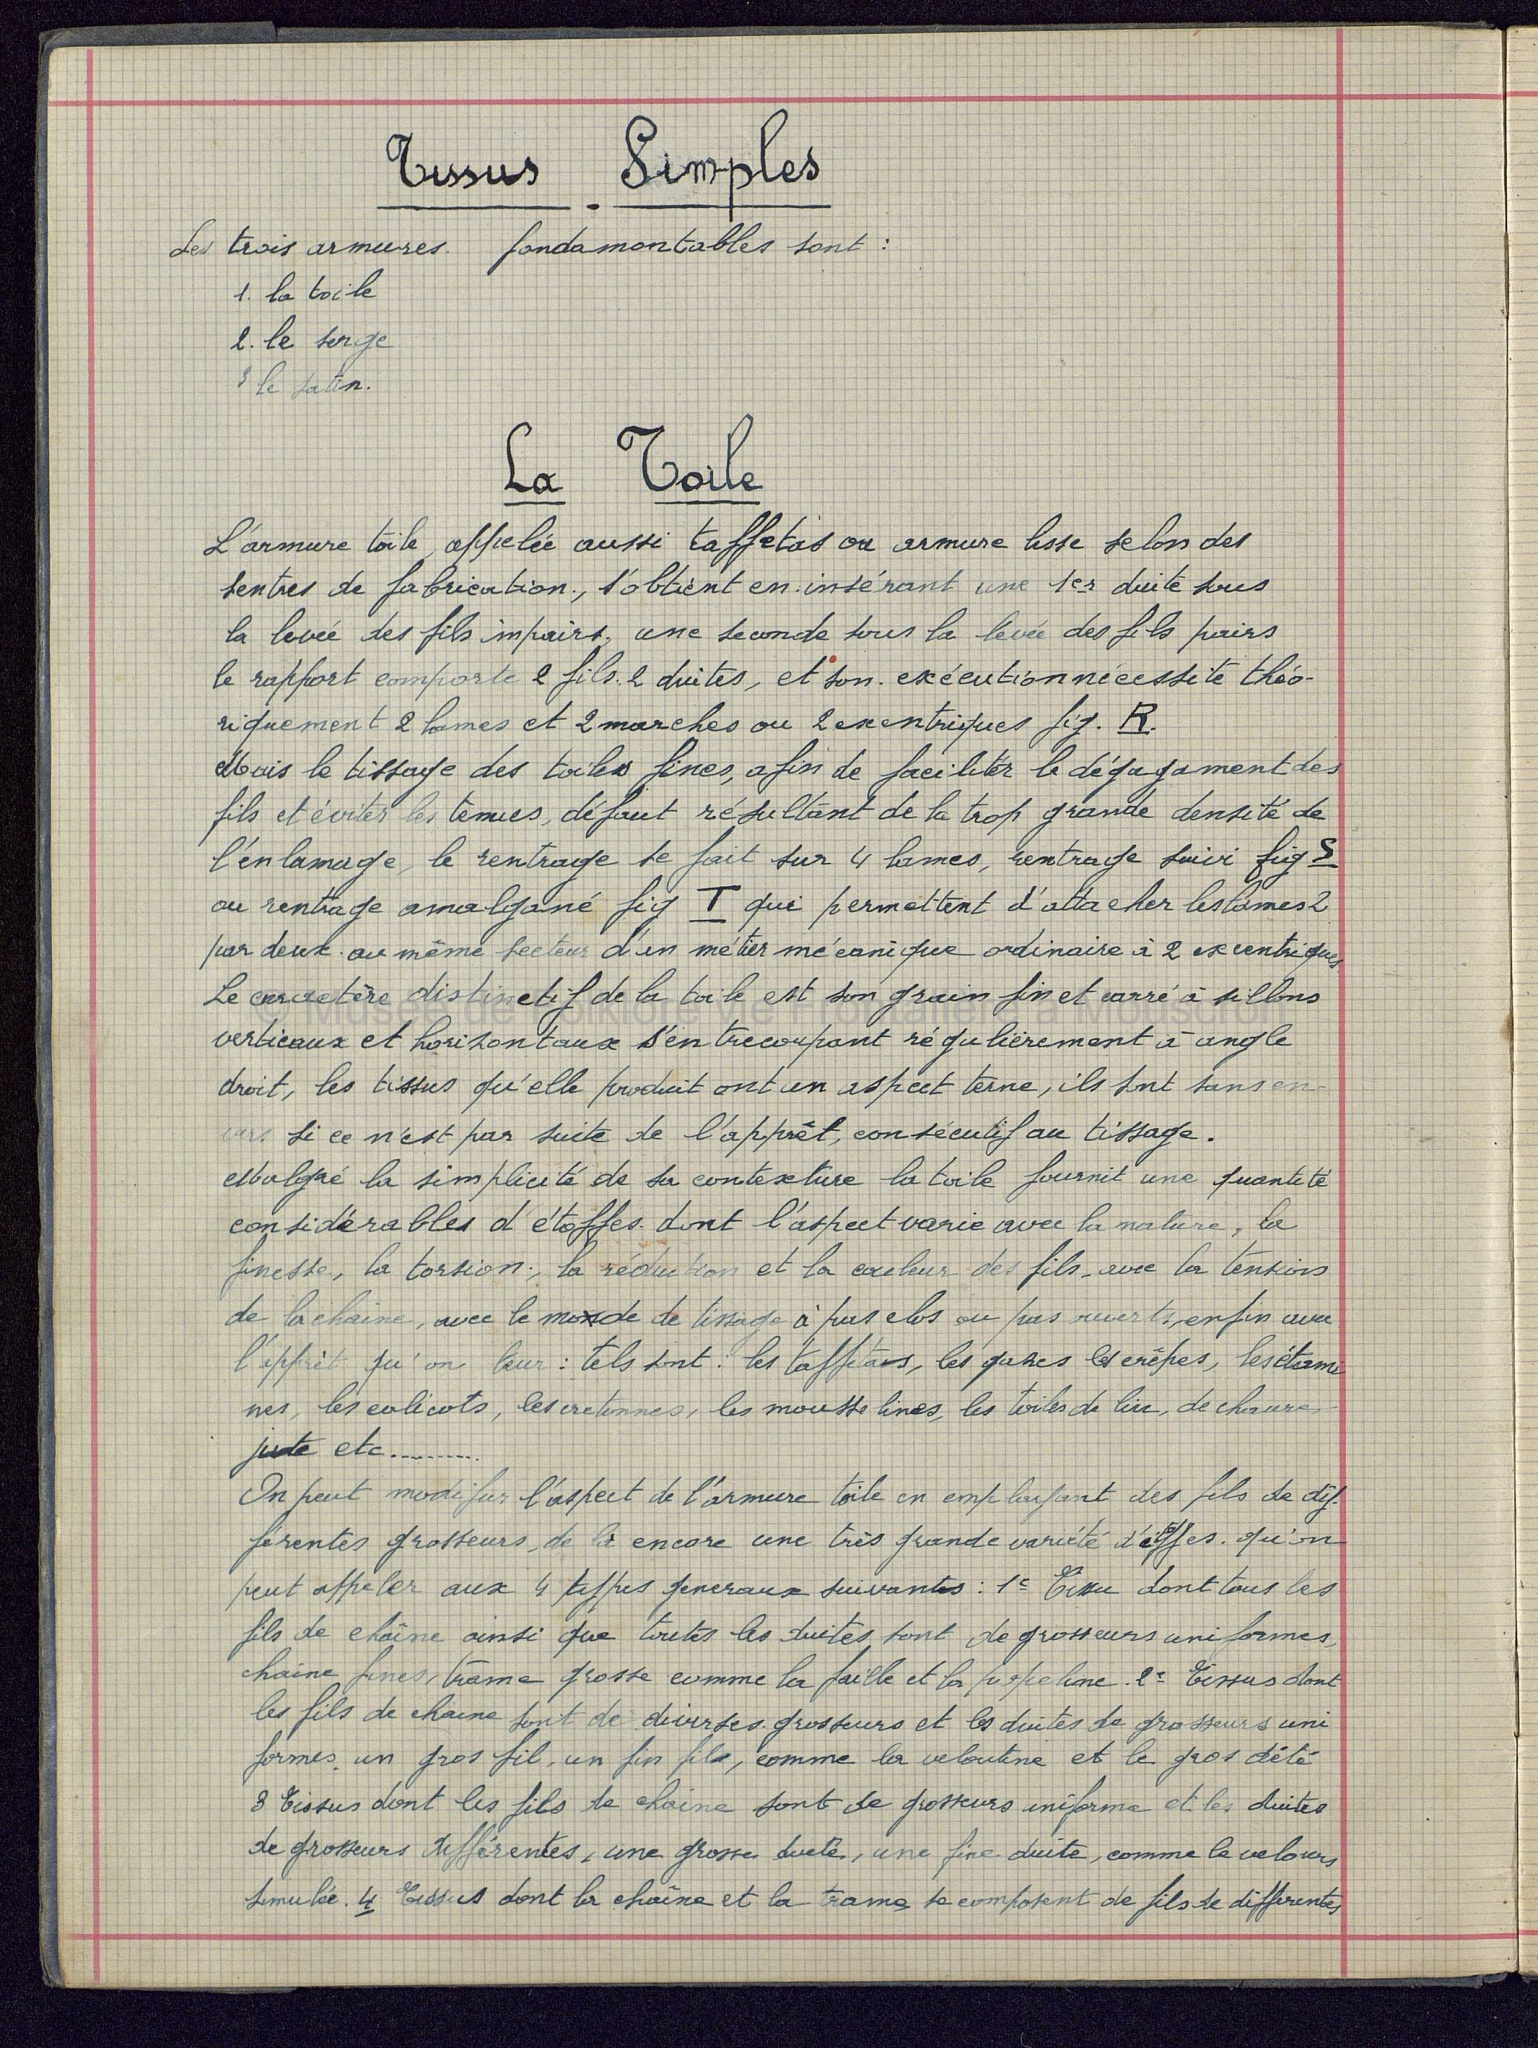 Tissus Simples
Les trois armures. fondamontables sont :
1. la toile
2. le serge
3 le satin.
La Toile
L'armure toile, appelée aussi taffetas ou armure lisse selon des
sentres de fabrication., s'obtient en insérant une 1er duite sous
la levée des fils impairs, une seconde sous la levée des fils pairs
le rapport comporte 2 fils. 2 duites, et son. exécution nécessite théo-
riquement 2 lames et 2 marches ou 2 excentriques fig. R.
Mais le tissage des toiles fines, afin de faciliter le dégagament des
fils et éviter les tenues, défaut résultant de la trop grande densité de
l'enlamage, le rentrage se fait sur 4 lames, rentrage suivi fig S
ou rentrage amalgané fig T qui permettent d'attacher les lames 2
par deux au même secteur d'un métier mécanique ordinaire à 2 excentriques
Le caractère distinctif de la toile est son grain fin et carré à sillons
© Musée de Folklore vie Frontalière à Mouscron
verticaux et horizontaux s'entrecoupant régulièrement à angle
droit, les tissus qu'elle produit ont un aspect terne, ils sont sans en-
vers si ce n'est par suite de l'apprêt, consécutif au tissage.
Malgré la simplicité de sa contexture la toile fournit une quantité
considérables d'étoffes dont l'aspect varie avec la nature, la
finesse, la torsion., la réduction et la couleur des fils, avec la tension
de la chaine, avec le mode de tissage à pas clos ou pas ouverts, enfin avec
l'apprêt qu'on leur : tels sont : les taffetas, les gazes les crêpes, les étami
nes, les calicots, les cretonnes, les mousselines, les toiles de lin, de chanvre
jute etc..........
On peut modifier l'aspect de l'armure toile en employant des fils de dif-
férentes grosseurs, de là encore une très grande variété d'étoffes. qu'on
peut appeler aux 4 types generaux suivants : 1e Tissu dont tous les
fils de chaîne ainsi que toutes les duites sont de grosseurs uniformes,
chaine fines, trame grosse comme la faille et la popeline. 2e Tissus dont
les fils de chaine sont de diverses grosseurs et les duites de grosseurs uni
formes, un gros fil, un fin fils, comme la veloutine et le gros d'été
3 Tissus dont les fils de chaine sont de grosseurs uniforme et les duites
de grosseurs différentes, une grosse duite, une fine duite, comme le velours
simulée. 4 Tissus dont la chaîne et la trame se composent de fils de différentes